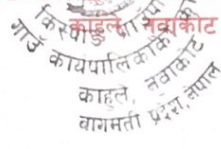 काहुले, नवाकोट
गाउँ कार्यपालिकाको
काहुले, नवाकोट
वागमती प्रदेश, नेपाल